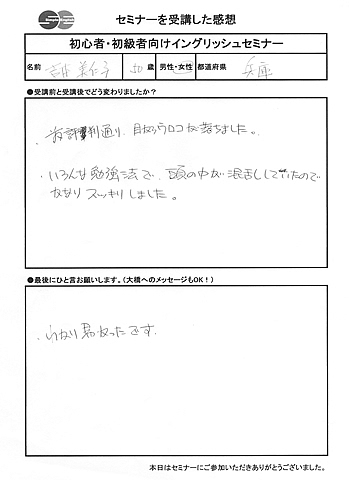 セミナーを受講した感想
初心者・初級者向けイングリッシュセミナー
名前 歳 男性・女性 都道府県 兵庫
●受講前と受講後でどう変わりましたか？
・前評判通り、目からウロコが落ちました。
・いろんな勉強法で、頭の中が混乱していたので
かなりスッキリしました。
●最後にひと言お願いします。（大橋へのメッセージもOK！）
・かなり良かったです。
本日はセミナーにご参加いただきありがとうございました。